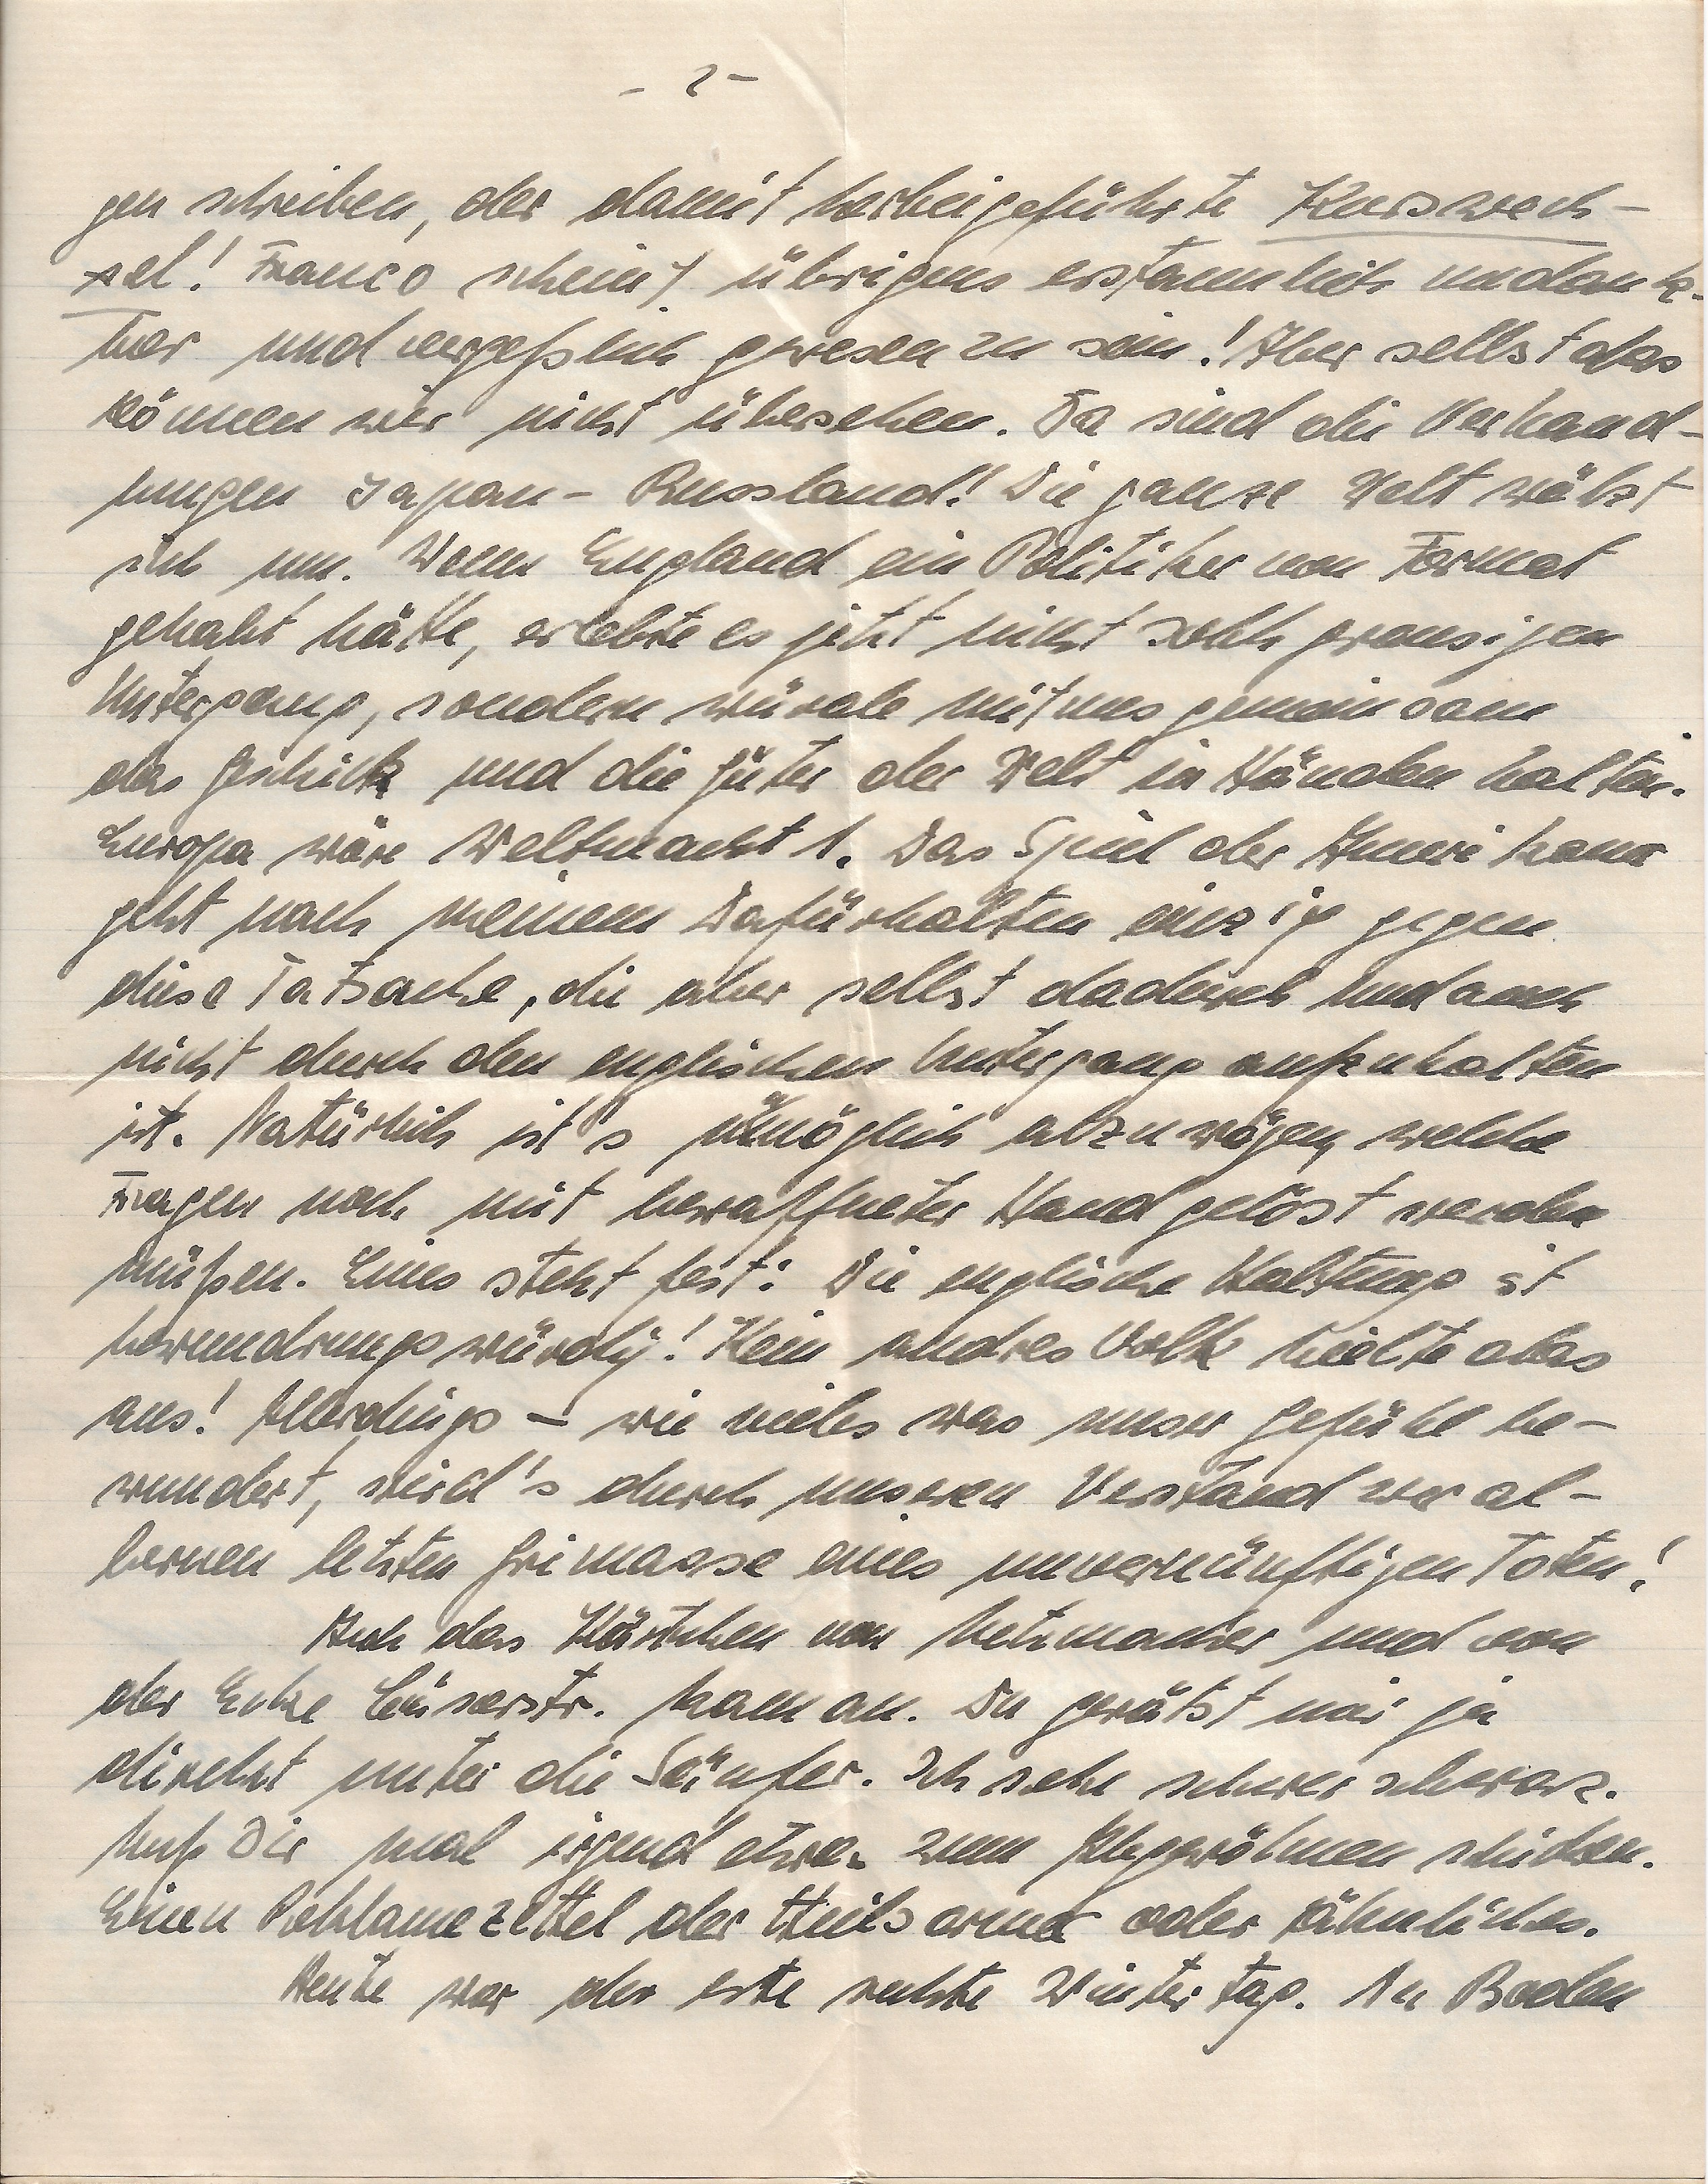 - 2 -
gen schreiben, der damit herbeigeführte Kurswech-
sel! Franco scheint übrigens erstaunlich undank-
bar und vergeßlich gewesen zu sein! Aber selbst das
können wir nicht übersehen. Da sind die Verhand-
lungen Japan - Russland! Die ganze Welt wälzt
sich um. Wenn England ein Politiker von Format
gehabt hätte, erlebte es jetzt nicht solch grausigen
Untergang, sondern würde mit uns gemeinsam
das Geschick und die Güter der Welt in Händen halten.
Europa wäre Weltmacht 1. Das Spiel der Amerikaner
geht nach meinem Dafürhalten einzig gegen
diese Tatsache, die aber selbst dadurch und auch
nicht durch den englischen Untergang aufzuhalten
ist. Natürlich ist's unmöglich abzuwägen, welche
Fragen noch mit bewaffneter Hand gelöst werden
müßen. Eines steht fest: Die englische Haltung ist
bewundrungswürdig! Kein andres Volk hielte das
aus! Allerdings - wie vieles was unser Gefühl be-
wundert, wird's durch unseren Verstand zur al-
bernen letzten Grimasse eines unvernünftigen Toten!
Auch das Kärtchen von Netzmacher und von
der Ecke str. kam an. Du gerätst mir ja
direkt unter die Säufer. Ich sehe schwer schwarz.
Muß Dir mal irgend etwas zum Abgewöhnen schicken.
Einen Reklamezettel der Heilsarmee oder ähnliches.
Heute war der erste rechte Wintertag. In Baden